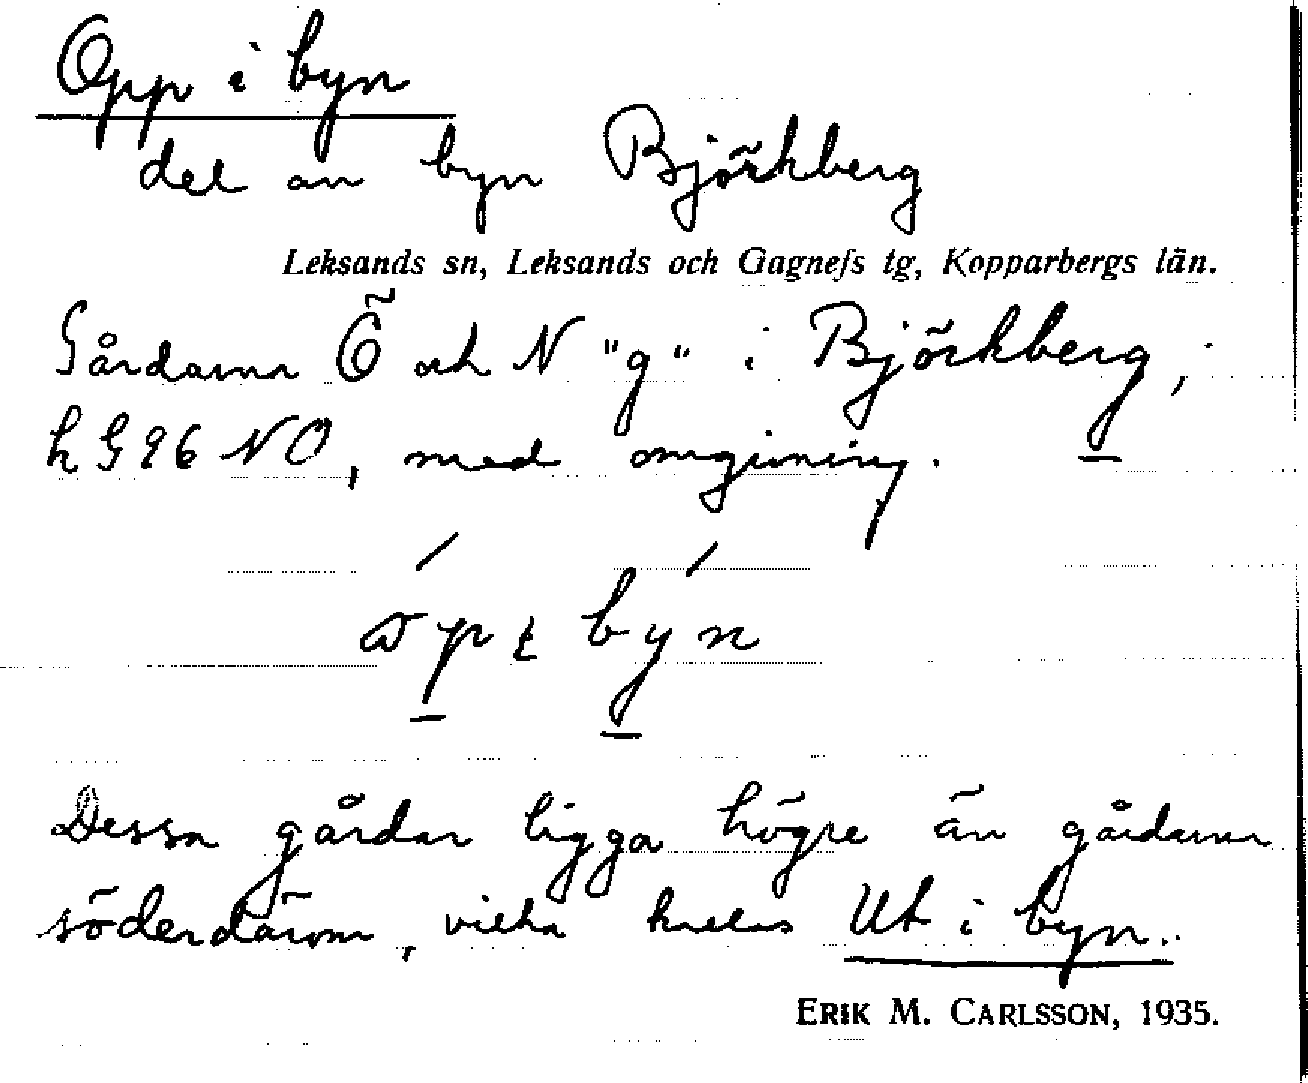 Opp i byn
del av byn Björkberg
Leksands sn, Leksands och Gagnefs tg, Kopparbergs län.
Gårdarna Ö och N "g" i Björkberg,
h G 26 NO, med omgivning.
byn
Dessa gårdar ligga högre än gårdarna
söderdärom, vilka kallas Ut i byn.
ERIK M. CARLSSON, 1935.